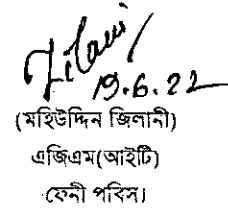 Jilani
19.6.22
(মহিউদ্দিন জিলানী)
এজিএম(আইটি)
ফেনী পবিস।